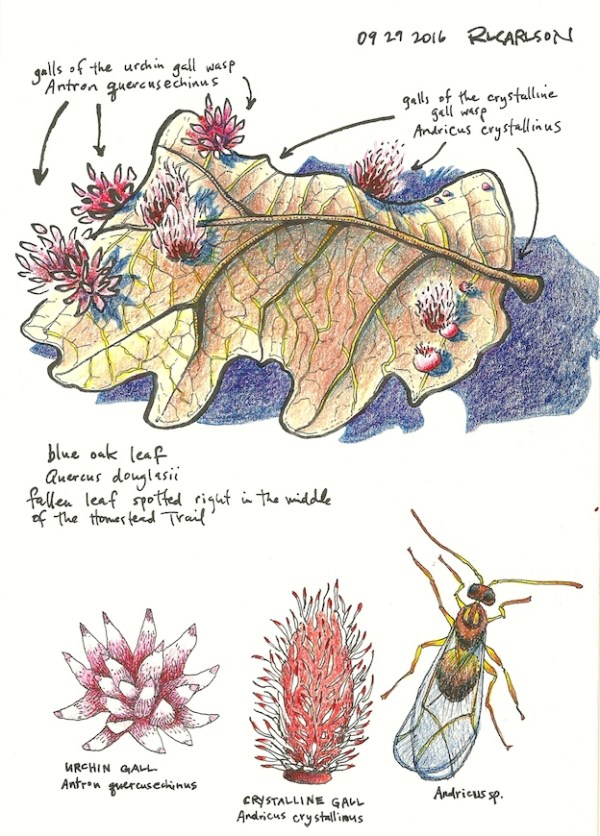 09 29 2016 RLCARLSON
galls of the urchin gall wasp
Antron quercusechinus
galls of the crystalline
gall wasp
Andricus crystallinus
blue oak leaf
Quercus douglasii
fallen leaf spotted right in the middle
of the Homestead Trail
URCHIN GALL
Antron quercusechinus
CRYSTALLINE GALL
Andricus crystallinus
Andricus sp.